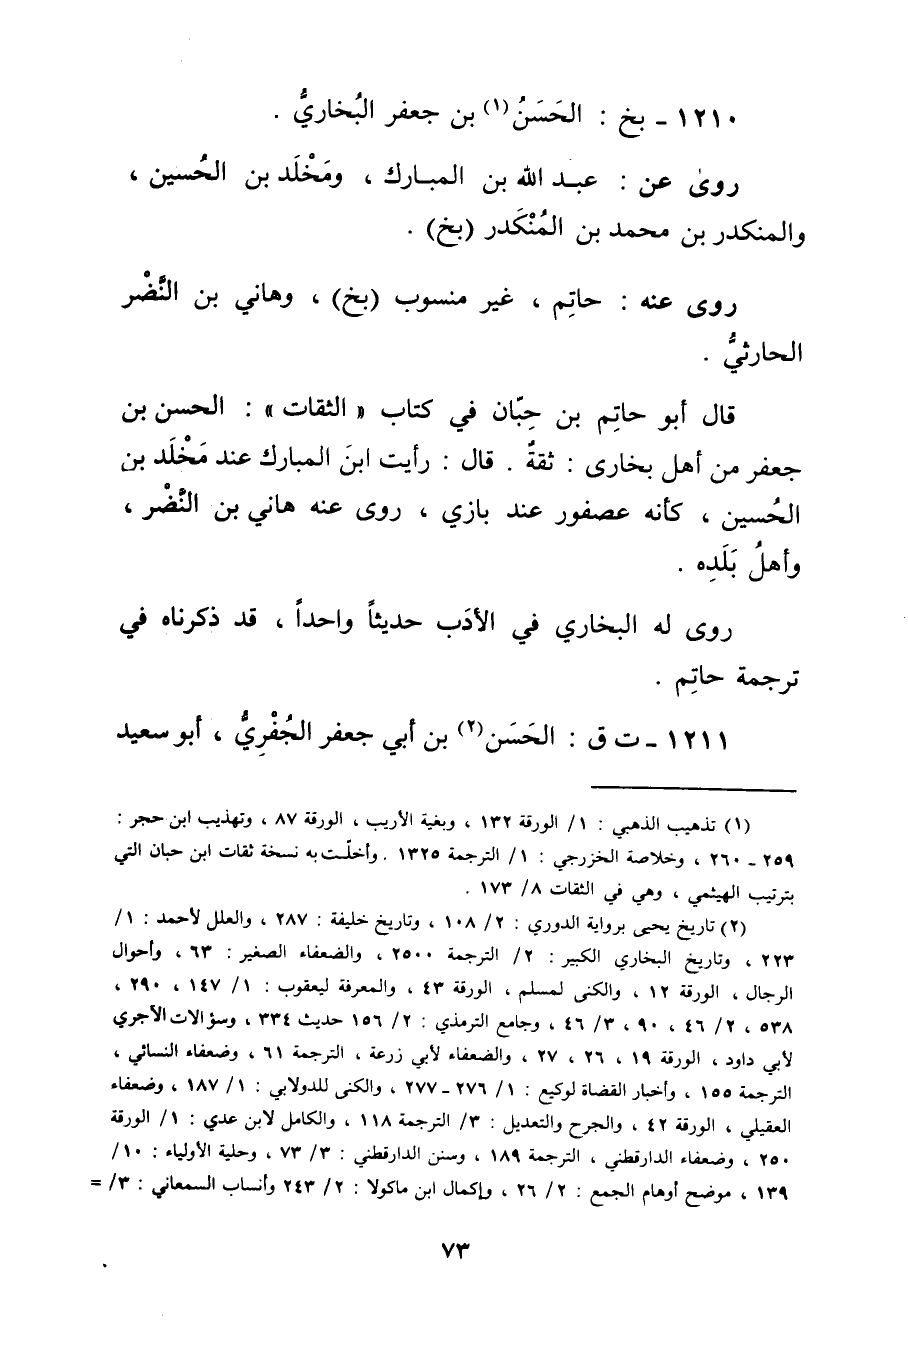 ١٢١٠ ـ بخ : الحَسَنُ(١) بن جعفر البُخاريُّ .
روىٰ عن : عبـد الله بن المبـارك ، ومَخْلَد بن الحُسين ،
والمنكدر بن محمد بن المُنْكَدر (بخ) .
روى عنه : حاتِم ، غير منسوب (بخ) ، وهاني بن النَّضْر
الحارثيُّ .
قال أبو حاتِم بن حِبّان في كتاب « الثقات » : الحسن بن
جعفر من أهل بخارى : ثقةٌ . قال : رأيت ابنَ المبارك عند مَخْلَد بن
الحُسين ، كأنه عصفور عند بازي ، روى عنه هاني بن النَّضْر ،
وأهلُ بَلَدِه .
روى له البخاري في الأدَب حديثاً واحداً ، قد ذكرناه في
ترجمة حاتِم .
١٢١١ ـ ت ق : الحَسَن(٢) بن أبي جعفر الجُفْرِيُّ ، أبو سعيد
(١) تذهيب الذهبي : ١/ الورقة ١٣٢ ، وبغية الأريب ، الورقة ٨٧ ، وتهذيب ابن حجر :
٢٥٩ ـ ٢٦٠ ، وخلاصة الخزرجي : ١/ الترجمة ١٣٢٥ . وأخلّت به نسخة ثقات ابن حبان التي
بترتيب الهيثمي ، وهي في الثقات ٨/ ١٧٣ .
(٢) تاريخ يحيى برواية الدوري : ٢/ ١٠٨ ، وتاريخ خليفة : ٢٨٧ ، والعلل لأحمد : ١/
٢٢٣ ، وتاريخ البخاري الكبير : ٢/ الترجمة ٢٥٠٠ ، والضعفاء الصغير : ٦٣ ، وأحوال
الرجال ، الورقة ١٢ ، والكنى لمسلم ، الورقة ٤٣ ، والمعرفة ليعقوب : ١/ ١٤٧ ، ٢٩٠ ،
٥٣٨ ، ٢/ ٤٦ ، ٩٠ ، ٣/ ٤٦ ، وجامع الترمذي : ٢/ ١٥٦ حديث ٣٣٤ ، وسؤالات الآجري
لأبي داود ، الورقة ١٩ ، ٢٦ ، ٢٧ ، والضعفاء لأبي زرعة ، الترجمة ٦١ ، وضعفاء النسائي ،
الترجمة ١٥٥ ، وأخبار القضاة لوكيع : ١/ ٢٧٦ ـ ٢٧٧ ، والكنى للدولابي : ١/ ١٨٧ ، وضعفاء
العقيلي ، الورقة ٤٢ ، والجرح والتعديل : ٣/ الترجمة ١١٨ ، والكامل لابن عدي : ١/ الورقة
٢٥٠ ، وضعفاء الدارقطني ، الترجمة ١٨٩ ، وسنن الدارقطني : ٣/ ٧٣ ، وحلية الأولياء : ١٠/
١٣٩ ، موضح أوهام الجمع : ٢/ ٢٦ ، وإكمال ابن ماكولا : ٢/ ٢٤٣ وأنساب السمعاني : ٣/ =
٧٣